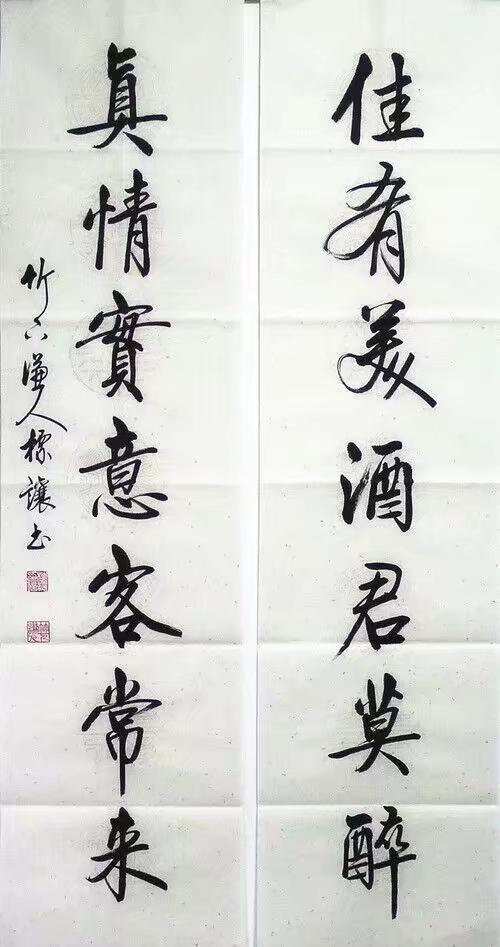 佳肴美酒君莫醉
真情實意客常来
竹下谦人標讓书